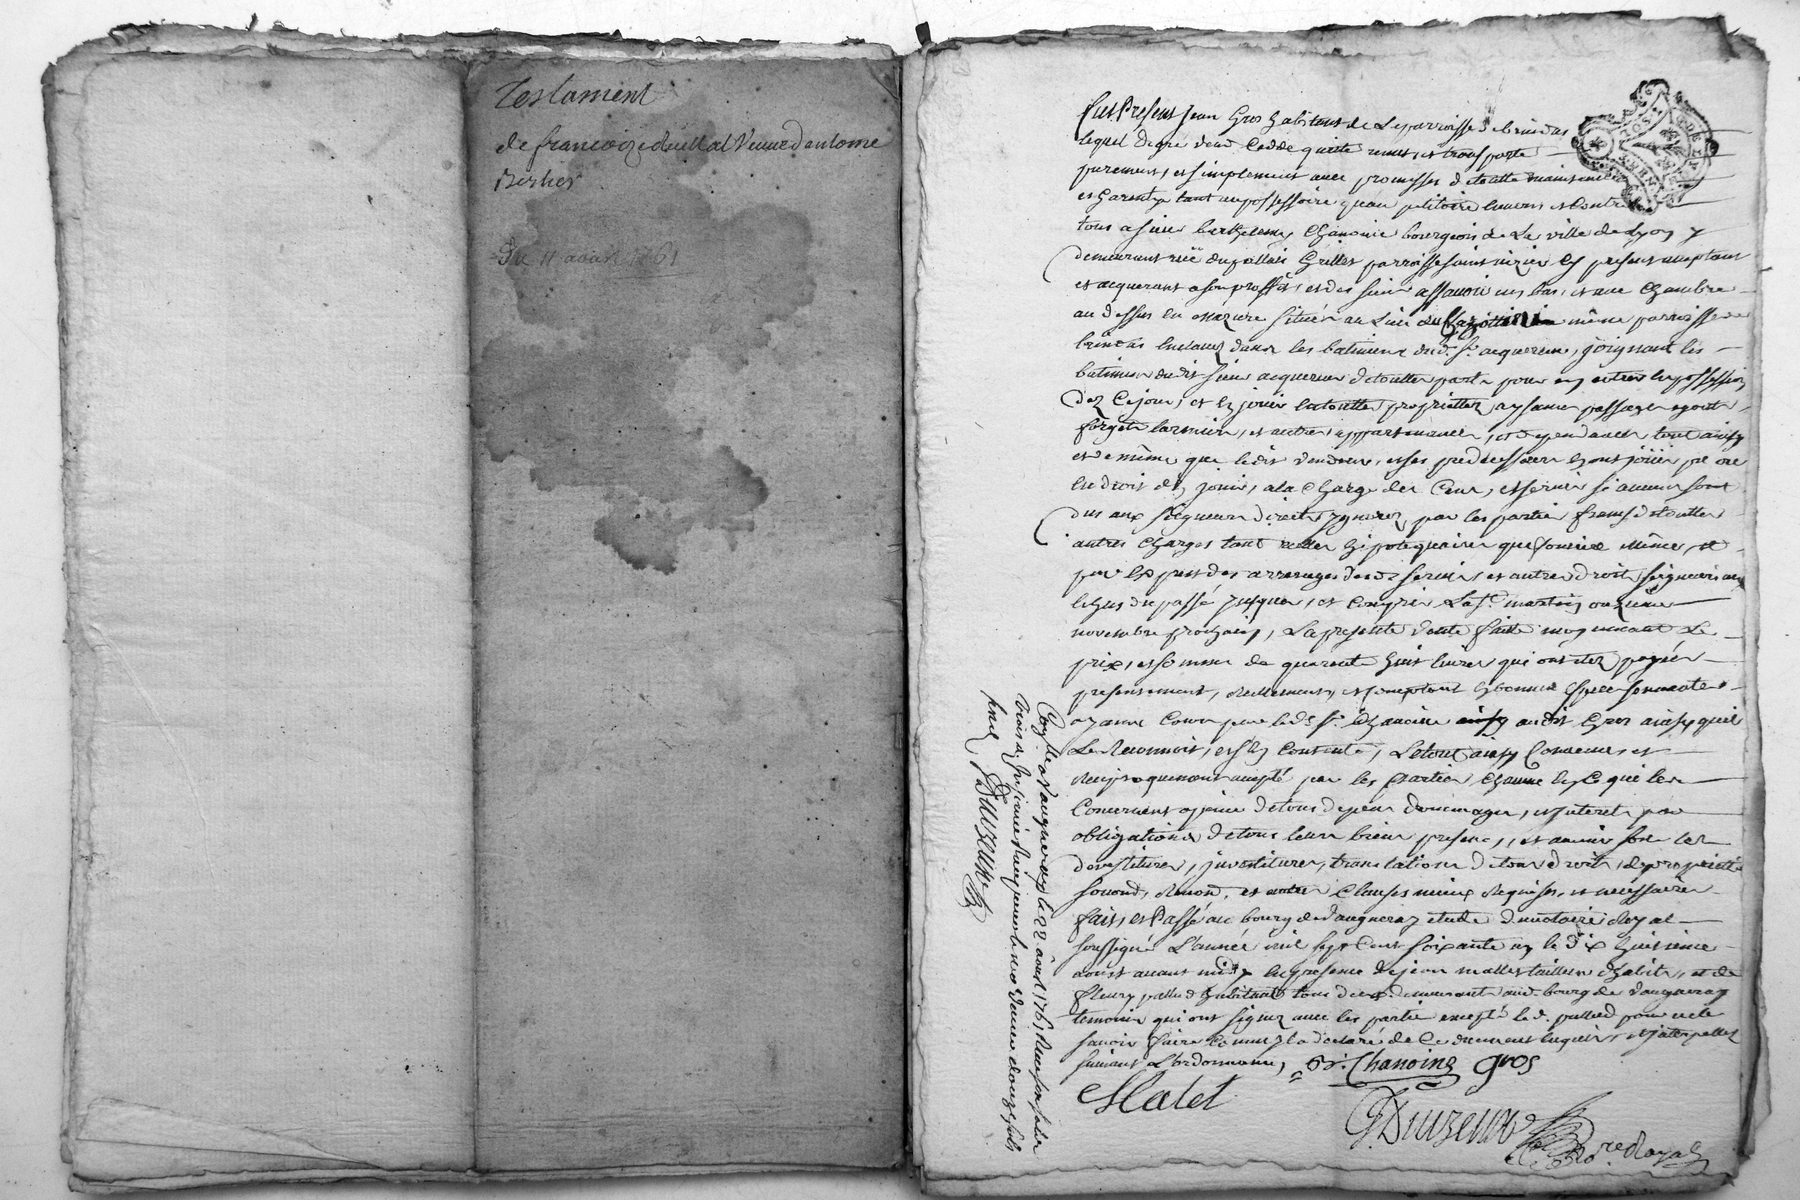 Testament
de francoize duillat Veuve dantoine
Berher
Du 11 aout 1761
fut Present Jean Gros habitant de La parroisse de brindas
lequel de gre vend Cedde quitte remet et transporte
purement, et simplement avec promesses de toutte maintenue
et Garentye tant au possessoire quau petitoire Envers et Contre
tous a sieur barthelemy Chanoine bourgeois de La ville de Lyon y
demeurant rüe du pallais Grillet parroisse saint nizier Cy present acceptant
et acquerant a son proffit, et des siens assavoir un bas, et une Chambre
au dessus en mazure situés au Lieu du même parroisse de
brindas Enclavez dans les batimens dud. sr. acquereur, joignant les
batimens dudit sieur acquereur de toutte parts pour en entrer en possession
dez Ce jour, et en jouir en toutte proprietté, aysance passage egout
forget larmier, et autres appartenances, et dependances, tout ainsy
et de même que ledit vendeur, et ses predecesseurs En ont joüi, pu ou
Eu droit d'En jouir, a la Charge des Cens, et servis si aucuns sont
dus aux seigneurs directs ygnorez par les parties francs de touttes
autres Charges tant Hipotequaires que même, et
par Exprest des arrerages desd. servis, et autres droits seigneuriaux
Echus du passé jusques, et Compris La st. martin onzieme
novembre prochain, La presente vente faite moyennant Le
prix, et somme de quarente huit livres qui ont etez payés
presentement, réellement, et Comptant En bonnes Especes sonnantes
ayant Cours par led. sr. Chanoine audit Gros ainsy quil
Le Reconnoit, et s'En Contente, Le tout ainsy Convenu, et
Reciproquement accepté par les parties Chacune En Ce qui les
Concernent a peine de tous depens dommages, et interet par
obligations de tous leurs biens presens, et avenir sous les
devestitures, jnvestitures, translations de tous droits, de propriete
fonond, Renon, et autres Clauses mieux Requises, et necessaires
fait, et Passé au bourg de Vaugneray etude du notaire Royal
soussigné L'année mil sept Cent soixante un le dix huitieme
aoust avant midy En presence de jean mallet tailleur d'habits, et de
fleury pallud habitant tous deux demeurants aud. bourg de Vaugneray
temoins qui ont signez avec les parties excepté led. pallud pour ne le
savoir faire Comme Il a declaré de Ce duement Enquis, et jnterpellez
suivant L'ordonnance,
B. Chanoine gros
Malet
Duizelux
no.re Royal
Conlle a Vaugneray le 22 aout 1761 Recu